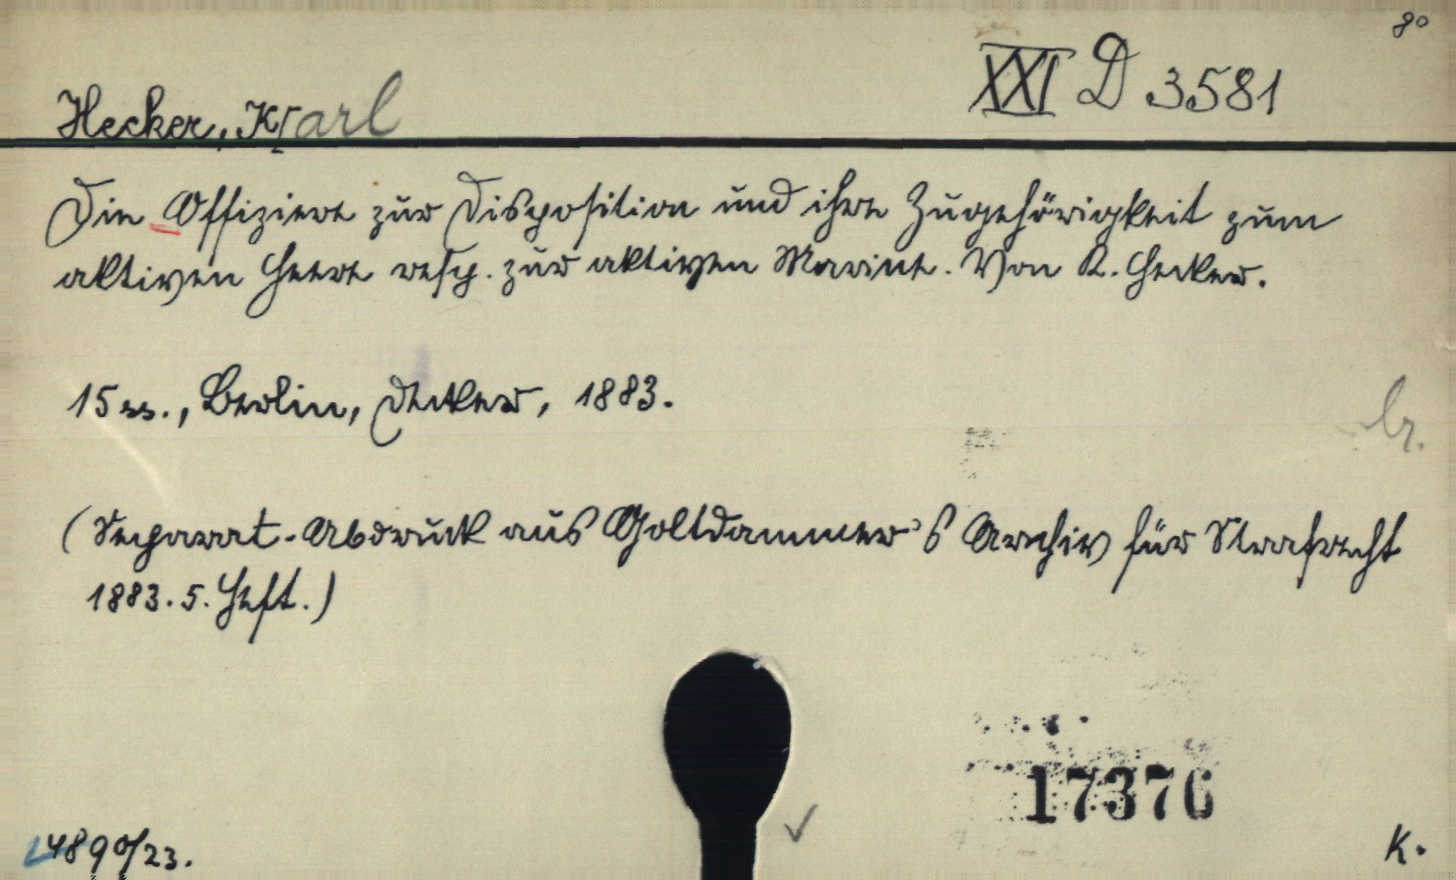 8°
XXI D 3581
Hecker, K[arl
Die Offiziere zur Disposition und ihre Zugehörigkeit zum
aktiven Heere resp. zur aktiven Marine. Von K. Hecker.
15 ss., Berlin, Decker, 1883.
br.
(Separat-Abdruck aus Goltdammer's Archiv für Strafrecht
1883. 5. Heft.)
17376
4890/23.
K.